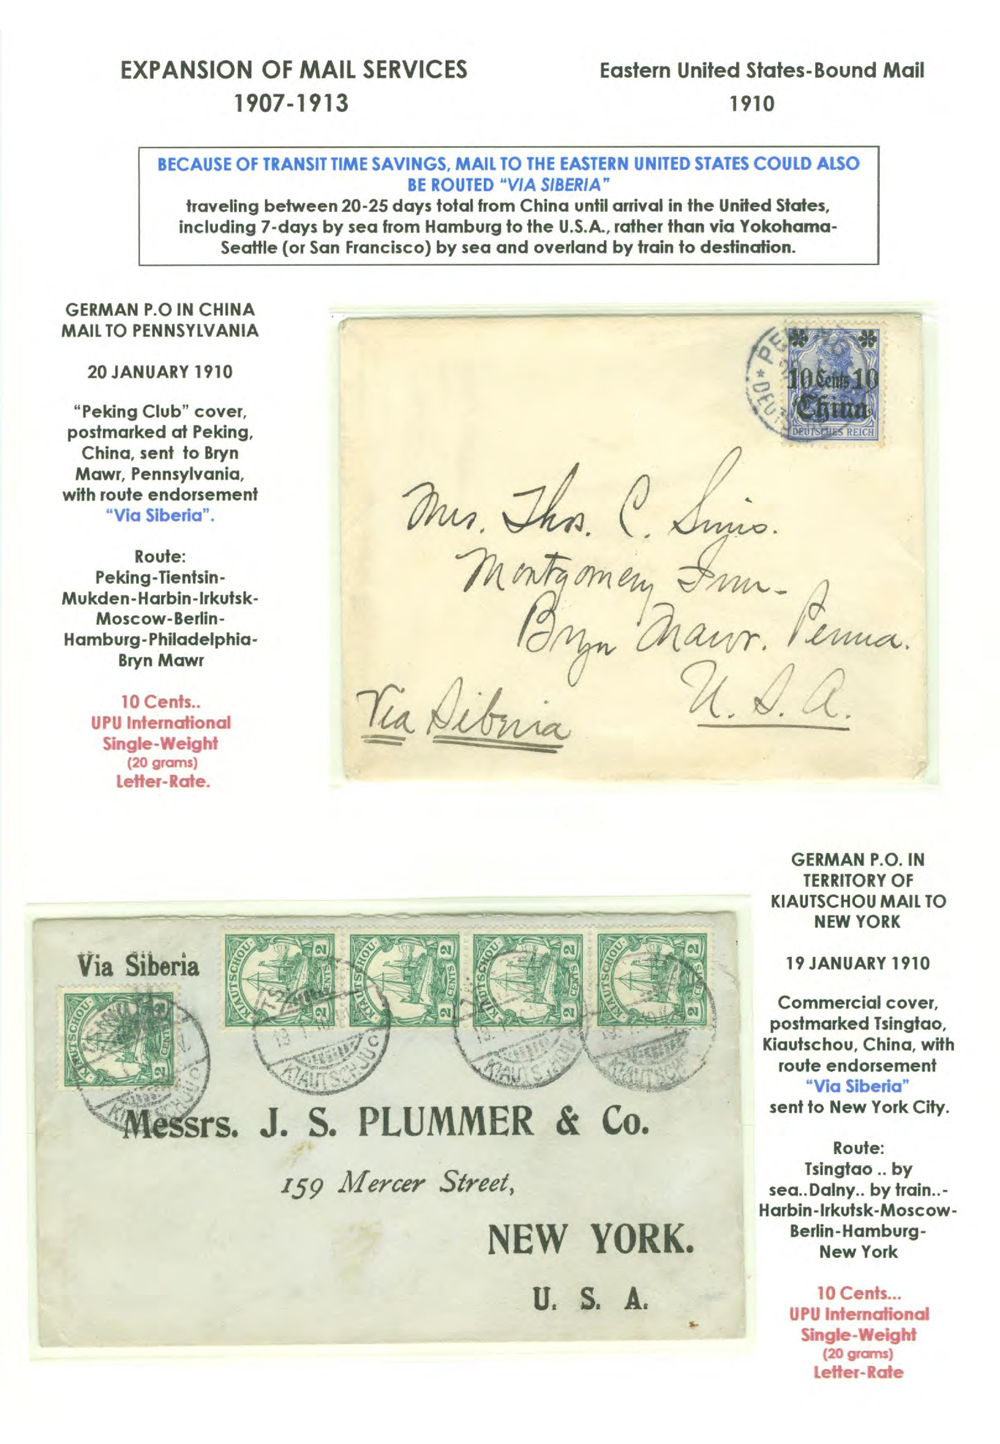 EXPANSION OF MAIL SERVICES
1907-1913
Eastern United States-Bound Mail
1910
BECAUSE OF TRANSIT TIME SAVINGS, MAIL TO THE EASTERN UNITED STATES COULD ALSO
BE ROUTED "VIA SIBERIA"
traveling between 20-25 days total from China until arrival in the United States,
including 7-days by sea from Hamburg to the U.S.A., rather than via Yokohama-
Seattle (or San Francisco) by sea and overland by train to destination.
GERMAN P.O IN CHINA
MAIL TO PENNSYLVANIA
20 JANUARY 1910
"Peking Club" cover,
postmarked at Peking,
China, sent to Bryn
Mawr, Pennsylvania,
with route endorsement
"Via Siberia".
Route:
Peking-Tientsin-
Mukden-Harbin-Irkutsk-
Moscow-Berlin-
Hamburg-Philadelphia-
Bryn Mawr
10 Cents..
UPU International
Single-Weight
(20 grams)
Letter-Rate.
10 Cents 10
China
DEUTSCHES REICH
Mrs. Thos. C. Sims.
Montgomery Inn-
Bryn Mawr. Penna.
U. S. A.
Via Siberia
GERMAN P.O. IN
TERRITORY OF
KIAUTSCHOU MAIL TO
NEW YORK
19 JANUARY 1910
Commercial cover,
postmarked Tsingtao,
Kiautschou, China, with
route endorsement
"Via Siberia"
sent to New York City.
Route:
Tsingtao .. by
sea..Dalny.. by train..-
Harbin-Irkutsk-Moscow-
Berlin-Hamburg-
New York
10 Cents...
UPU International
Single-Weight
(20 grams)
Letter-Rate
Via Siberia
KIAUTSCHOU. 2 CENTS
KIAUTSCHOU. 2 CENTS
KIAUTSCHOU. 2 CENTS
KIAUTSCHOU. 2 CENTS
KIAUTSCHOU. 2 CENTS
Messrs. J. S. PLUMMER & Co.
159 Mercer Street,
NEW YORK.
U. S. A.